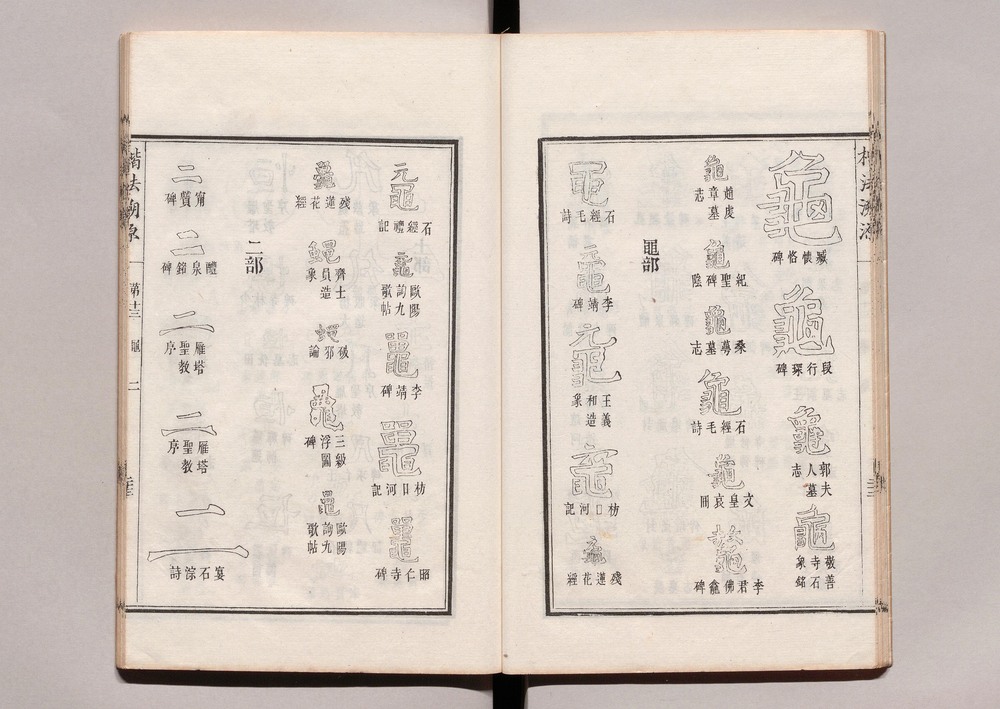 楷法溯源
龜
臧懷恪碑
龜
段行琛碑
龜
郭夫人墓志
龜
敬善寺石象銘
龜
趙虔章墓志
龜
紀聖碑陰
龜
桑萼墓志
龜
石經毛詩
龜
文皇哀冊
龜
李君佛龕碑
黽部
黽
石經毛詩
黿
李靖碑
黿
王義和造象
黿
枋口河記
黿
殘蓮花經
黿
石經禮記
黿
歐陽詢九歌帖
鼉
李靖碑
鼉
枋口河記
鼉
昭仁寺碑
殘蓮花經
蠅
齊士員造象
蠅
破邪論
三級浮圖碑
黽
歐陽詢九歌帖
二部
二
甯贊碑
二
醴泉銘碑
二
雁塔聖教序
二
雁塔聖教序
二
宴石淙詩
楷法溯源 第十三 龜 二